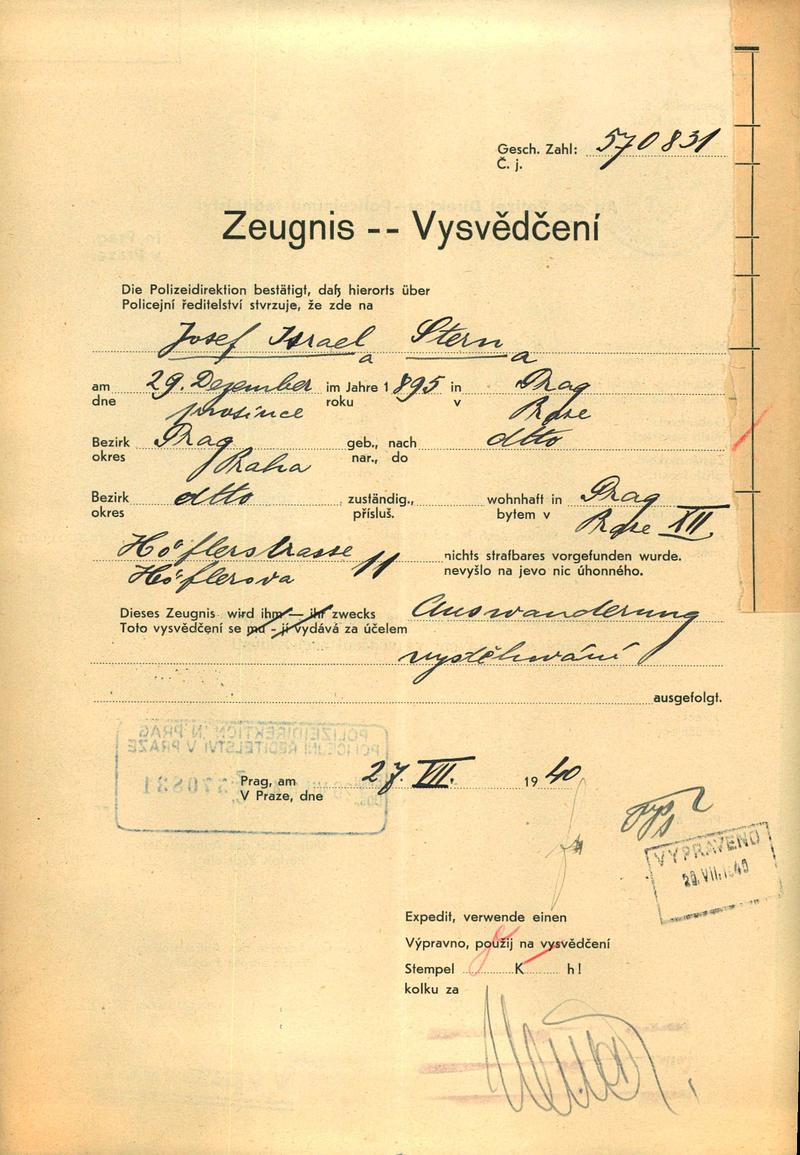 Gesch. Zahl: 570831
Č. j.
Zeugnis -- Vysvědčení
Die Polizeidirektion bestätigt, daß hierorts über
Policejní ředitelství stvrzuje, že zde na
Josef Israel Stern
a a
am 29. Dezember im Jahre 1895 in Prag
dne prosince roku v Praze
Bezirk Prag geb., nach dtto
okres Praha nar., do
Bezirk dtto zuständig., wohnhaft in Prag
okres přísluš. bytem v Praze XII.
Höflerstrasse 11 nichts strafbares vorgefunden wurde.
Höflerova nevyšlo na jevo nic úhonného.
Dieses Zeugnis wird ihm — ihr zwecks Auswanderung
Toto vysvědčení se mu - jí vydává za účelem
vystěhování
ausgefolgt.
POLIZEIDIREKTION IN PRAG
POLICEJNÍ ŘEDITELSTVÍ V PRAZE
570831
Prag, am 27. VII. 1940
V Praze, dne
VYPRAVENO
29. VII. 1940
Expedit, verwende einen
Výpravno, použij na vysvědčení
Stempel K h!
kolku za